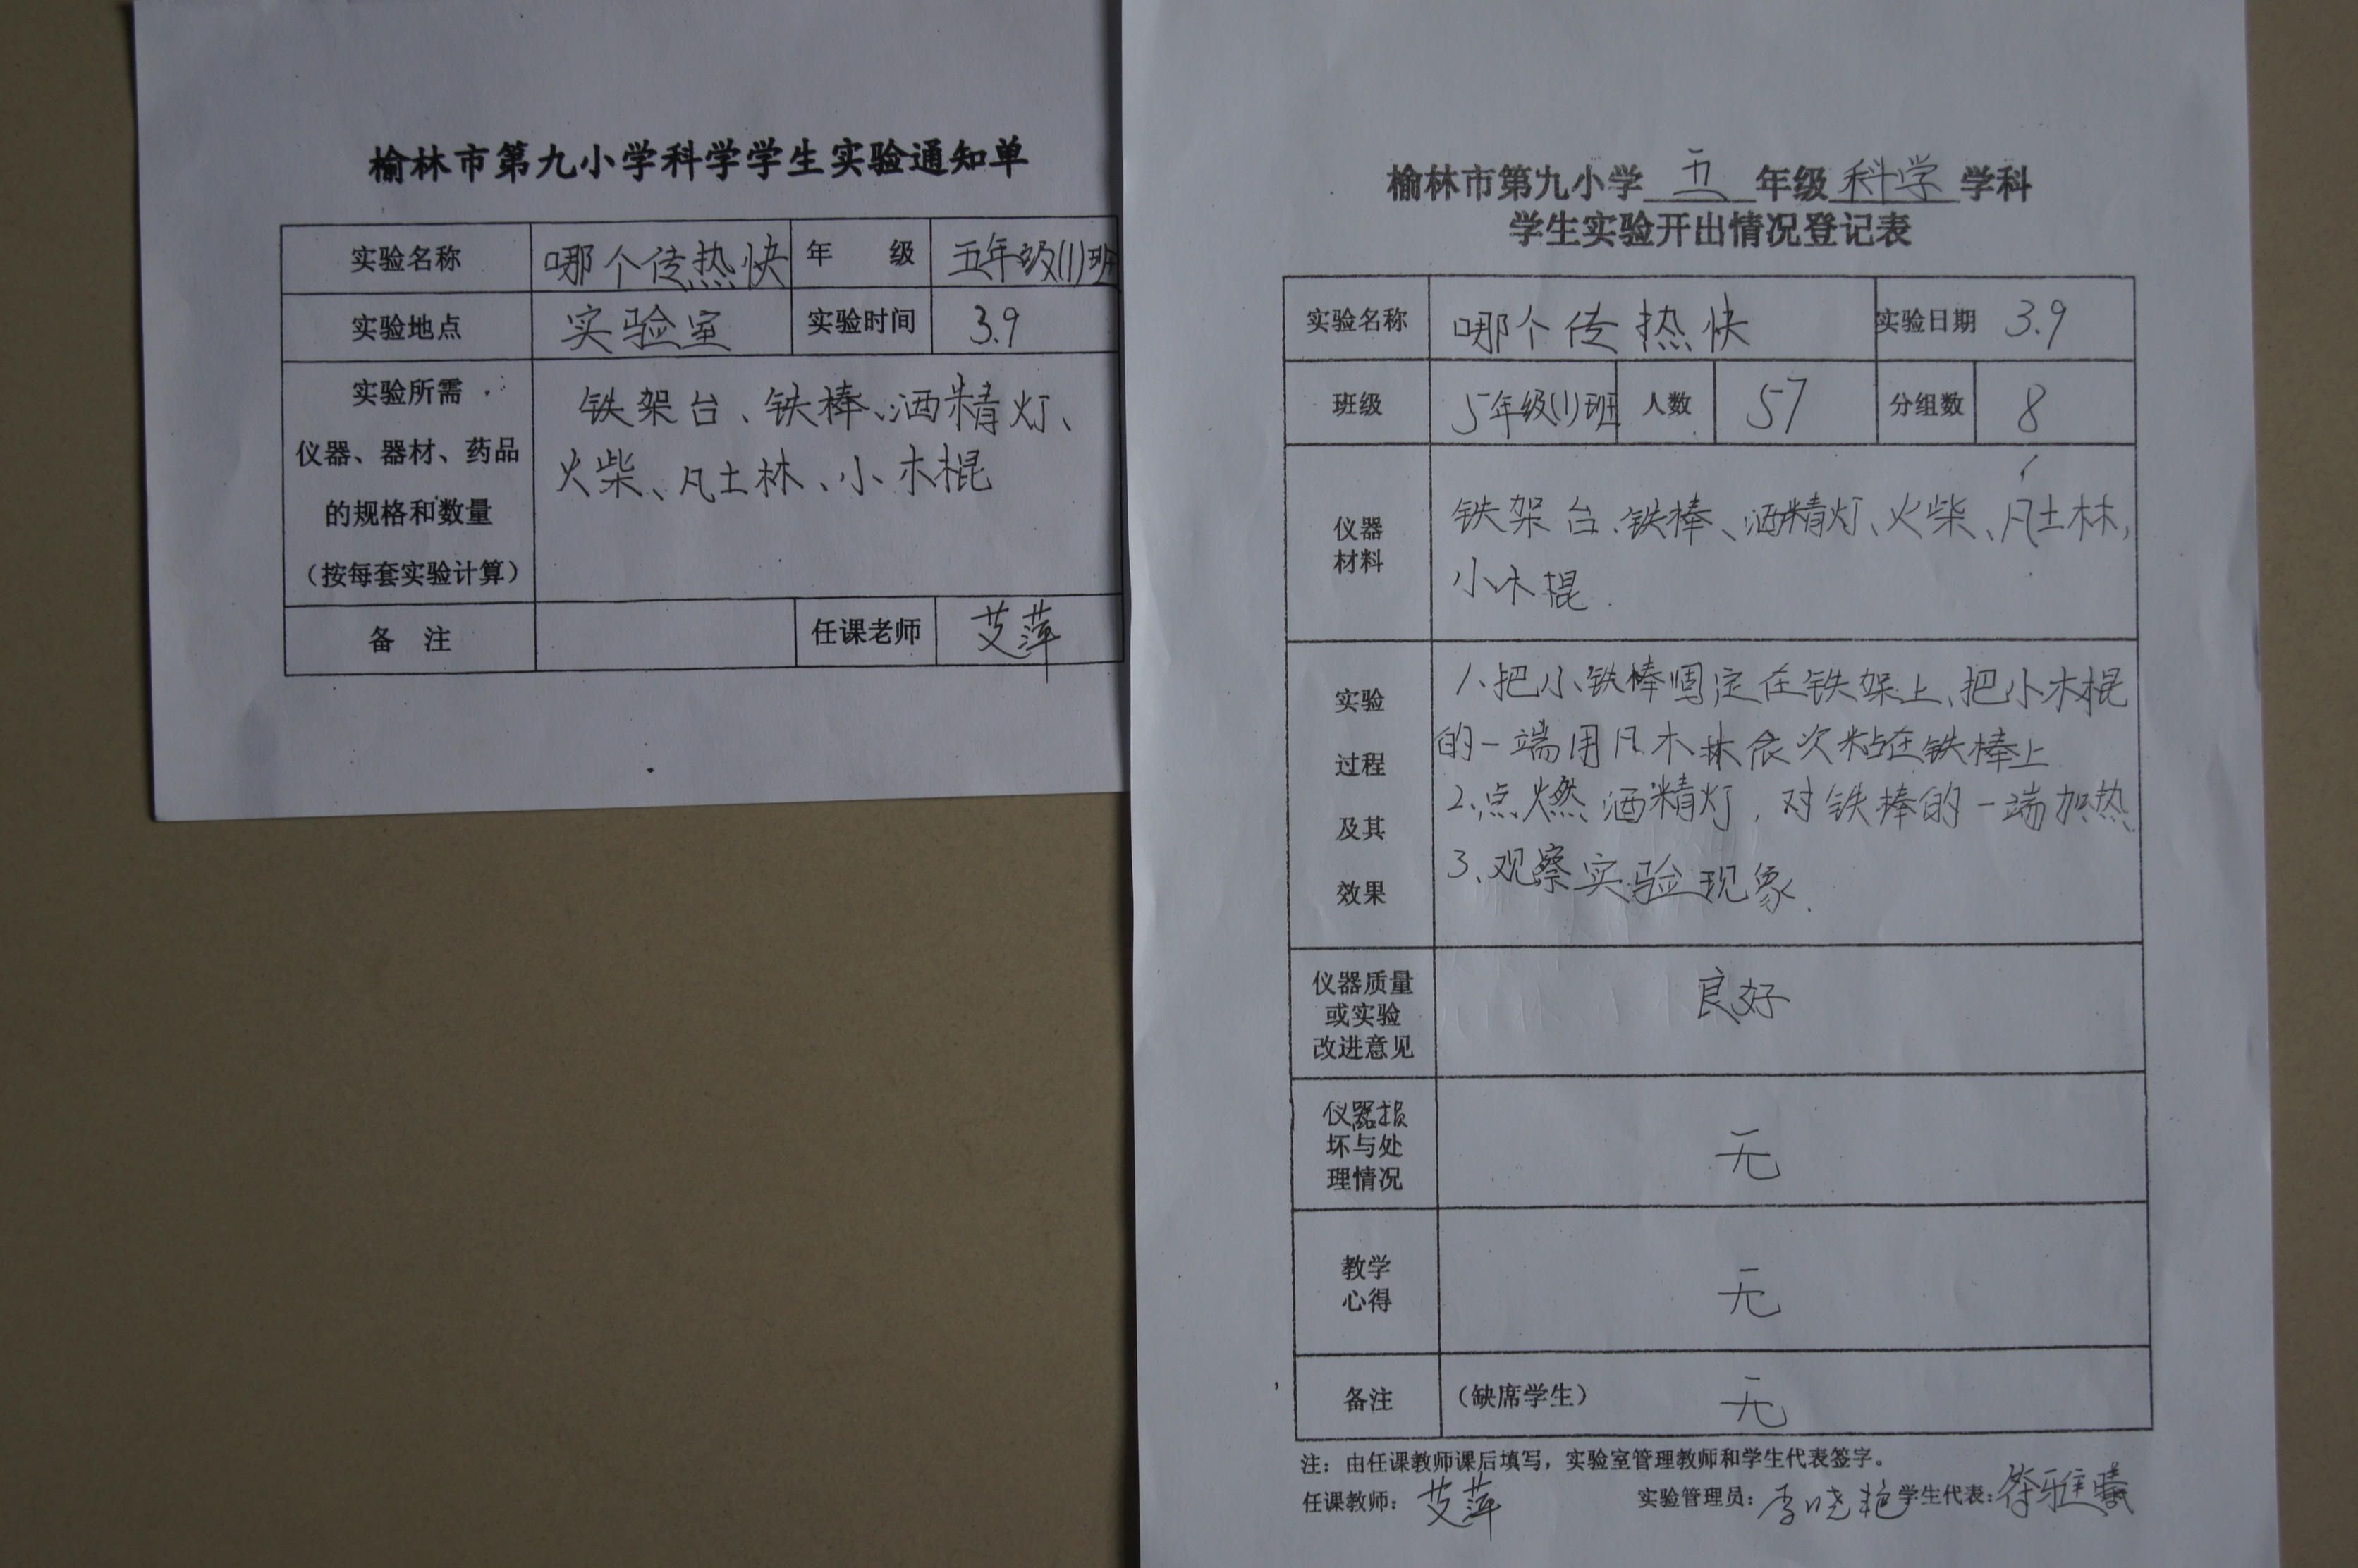 榆林市第九小学科学学生实验通知单
实验名称 哪个传热快 年 级 五年级(1)班
实验地点 实验室 实验时间 3.9
实验所需
仪器、器材、药品
的规格和数量
（按每套实验计算）
铁架台、铁棒、酒精灯、
火柴、凡士林、小木棍
备 注 任课老师 艾萍
榆林市第九小学 五 年级 科学 学科
学生实验开出情况登记表
实验名称 哪个传热快 实验日期 3.9
班级 5年级(1)班 人数 57 分组数 8
仪器
材料
铁架台、铁棒、酒精灯、火柴、凡士林,
小木棍.
实验
过程
及其
效果
1、把小铁棒固定在铁架上、把小木棍
的一端用凡木林依次粘在铁棒上
2、点燃酒精灯，对铁棒的一端加热.
3、观察实验现象.
仪器质量
或实验
改进意见
良好
仪器损
坏与处
理情况
无
教学
心得
无
备注 （缺席学生） 无
注：由任课教师课后填写，实验室管理教师和学生代表签字。
任课教师： 艾萍 实验管理员： 李晓艳 学生代表：